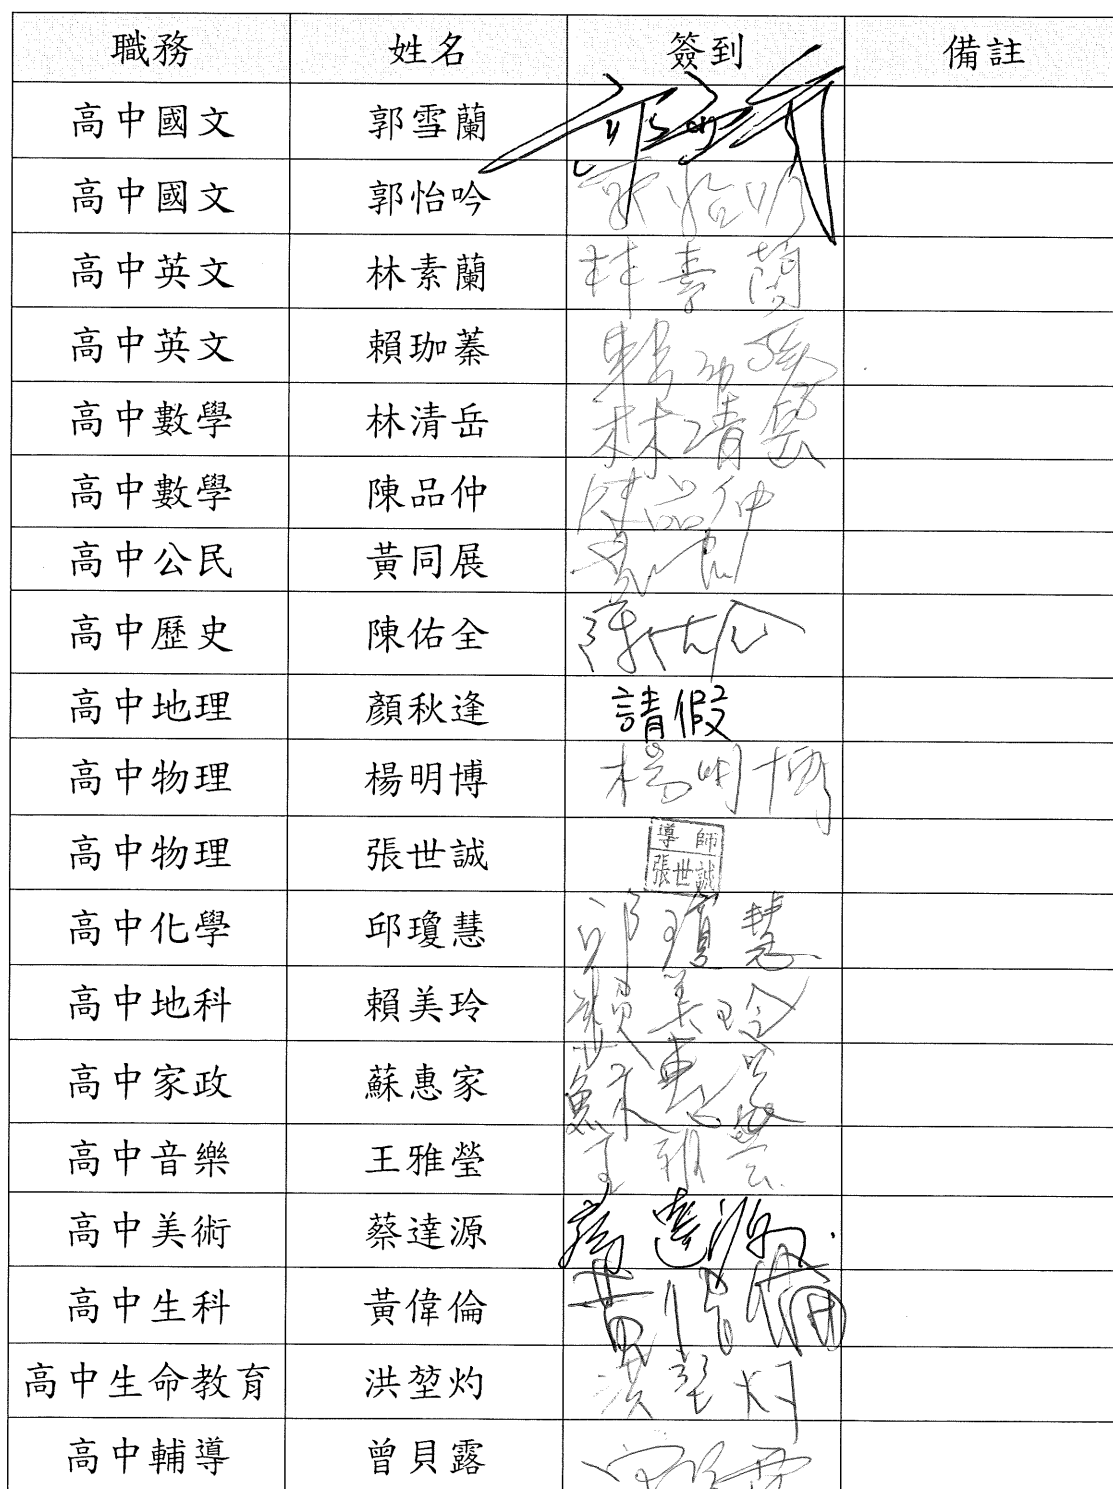 職務 姓名 簽到 備註
高中國文 郭雪蘭
高中國文 郭怡吟 郭怡吟
高中英文 林素蘭 林素蘭
高中英文 賴珈蓁
高中數學 林清岳 林清岳
高中數學 陳品仲 陳品仲
高中公民 黃同展
高中歷史 陳佑全 陳佑全
高中地理 顏秋逢 請假
高中物理 楊明博 楊明博
高中物理 張世誠 導師 張世誠
高中化學 邱瓊慧 邱瓊慧
高中地科 賴美玲 賴美玲
高中家政 蘇惠家 蘇惠家
高中音樂 王雅瑩 王雅瑩
高中美術 蔡達源 蔡達源
高中生科 黃偉倫 黃偉倫
高中生命教育 洪堃灼 洪堃灼
高中輔導 曾貝露